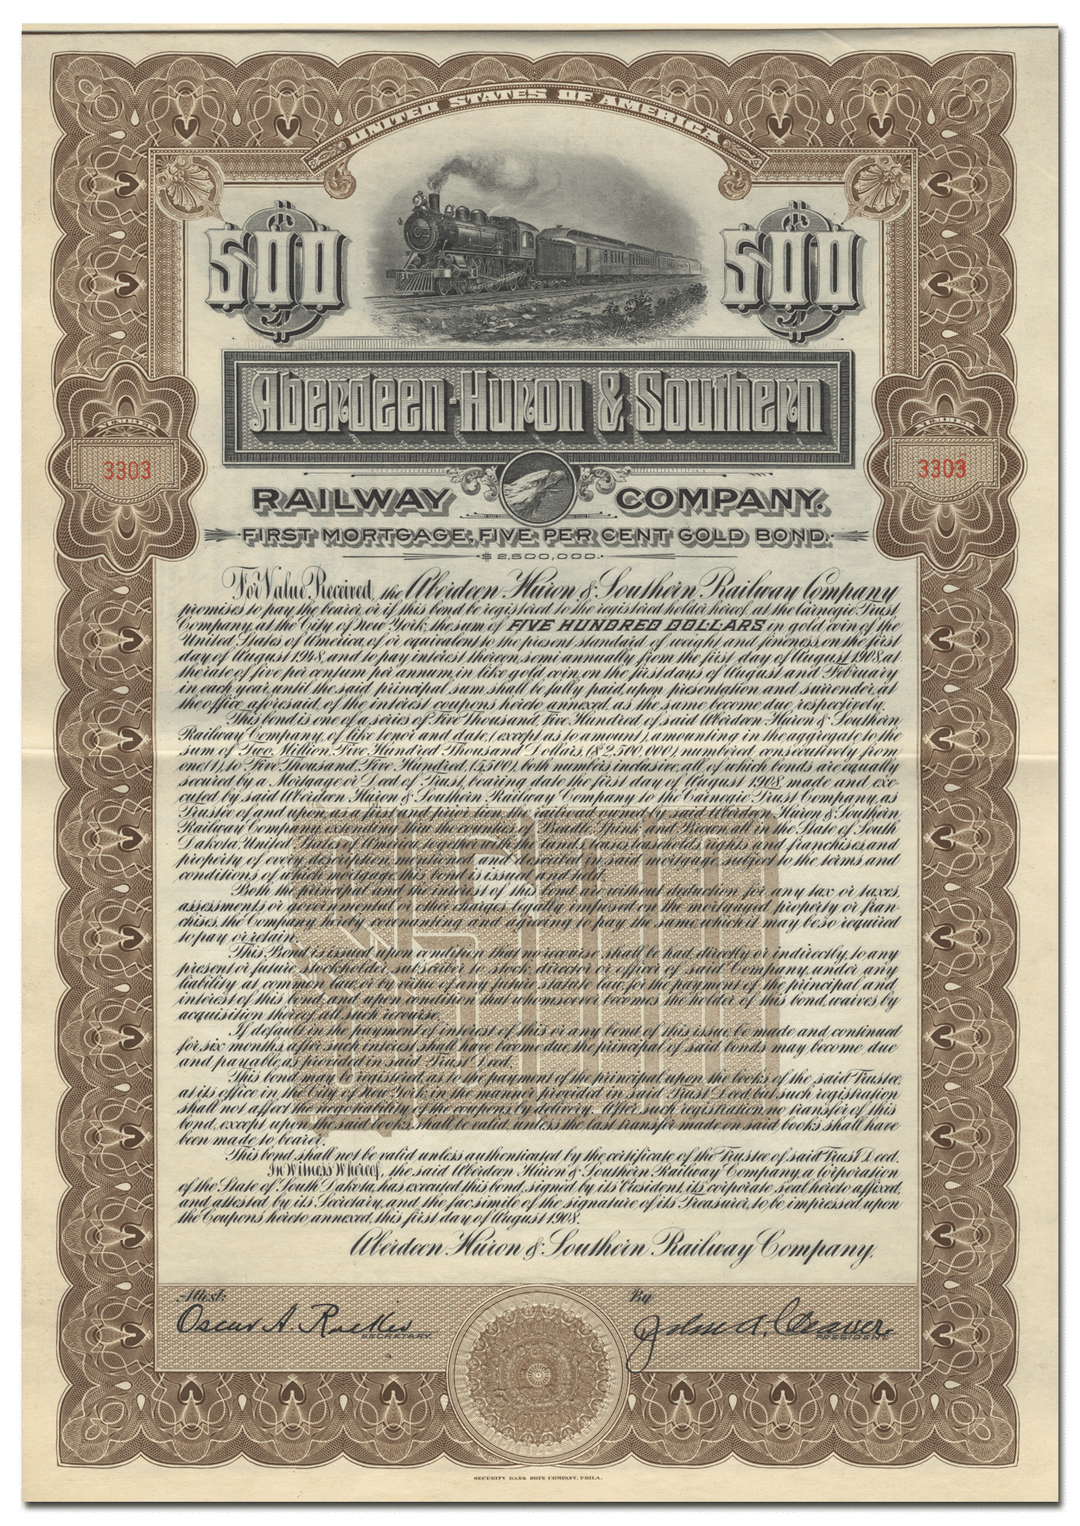 UNITED STATES OF AMERICA
$500 $500
Aberdeen-Huron & Southern
NUMBER NUMBER
3303 3303
RAILWAY COMPANY.
FIRST MORTGAGE, FIVE PER CENT GOLD BOND.
$2,500,000.
For Value Received, the Aberdeen Huron & Southern Railway Company
promises to pay the bearer, or if this bond be registered to the registered holder hereof, at the Carnegie Trust
Company, at the City of New York, the sum of FIVE HUNDRED DOLLARS in gold coin of the
United States of America, of or equivalent to the present standard of weight and fineness, on the first
day of August 1948, and to pay interest thereon, semi annually from the first day of August 1908, at
the rate of five per centum per annum, in like gold coin, on the first days of August and February
in each year, until the said principal sum shall be fully paid, upon presentation and surrender, at
the office aforesaid, of the interest coupons hereto annexed, as the same become due, respectively.
This bond is one of a series of Five Thousand, Five Hundred of said Aberdeen Huron & Southern
Railway Company, of like tenor and date, (except as to amount), amounting in the aggregate, to the
sum of Two Million, Five Hundred Thousand Dollars, ($2,500,000) numbered consecutively from
one (1), to Five Thousand, Five Hundred, (5500), both numbers inclusive, all of which bonds are equally
secured by a Mortgage or Deed of Trust, bearing date the first day of August 1908, made and exe-
cuted by said Aberdeen Huron & Southern Railway Company to the Carnegie Trust Company, as
Trustee of and upon, as a first and prior lien, the railroad owned by said Aberdeen, Huron & Southern
Railway Company, extending thru the counties of Beadle, Spink and Brown, all in the State of South
Dakota, United States of America, together with the lands, leases, leaseholds, rights and franchises, and
property of every description, mentioned and described by said mortgage, subject to the terms and
conditions of which mortgage, this bond is issued and held.
Both the principal and the interest of this bond are without deduction for any tax or taxes,
assessments or governmental or other charges legally imposed on the mortgaged property or fran-
chises, the Company hereby covenanting and agreeing to pay the same which it may be so required
to pay or retain.
This Bond is issued upon condition that no recourse shall be had, directly or indirectly, to any
present or future stockholder, subscriber to stock, director or officer of said Company, under any
liability at common law, or by virtue of any future statute law, for the payment of the principal and
interest of this bond, and upon condition that whomsoever becomes the holder of this bond, waives by
acquisition thereof all such recourse.
If default in the payment of interest of this or any bond of this issue, be made and continued
for six months, after such interest shall have become due, the principal of said bonds may become due
and payable, as provided in said Trust Deed.
This bond may be registered, as to the payment of the principal upon the books of the said Trustee,
at its office in the City of New York, in the manner provided in said Trust Deed but such registration
shall not affect the negotiability of the coupons by delivery. After such registration, no transfer of this
bond, except upon the said books, shall be valid, unless the last transfer made on said books shall have
been made to bearer.
This bond shall not be valid unless authenticated by the certificate of the Trustee of said Trust Deed.
In Witness Whereof, the said Aberdeen Huron & Southern Railway Company, a Corporation
of the State of South Dakota, has executed this bond, signed by its President, its corporate seal hereto affixed,
and attested by its Secretary, and the facsimile of the signature of its Treasurer, to be impressed upon
the Coupons hereto annexed, this first day of August 1908.
Aberdeen Huron & Southern Railway Company.
Attest: By
Oscar A. John A.
SECRETARY. PRESIDENT.
SECURITY BANK NOTE COMPANY, PHILA.